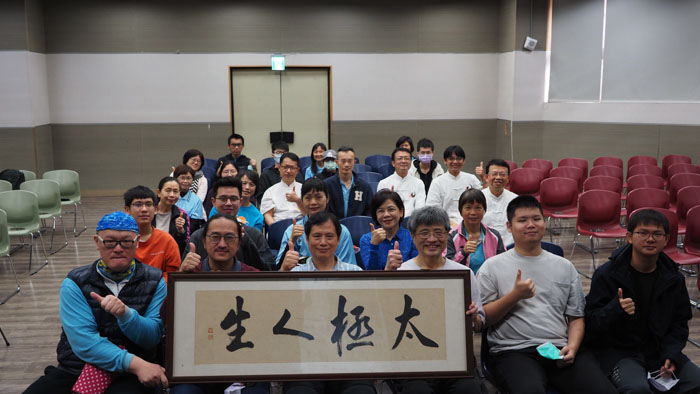 太極人生
H